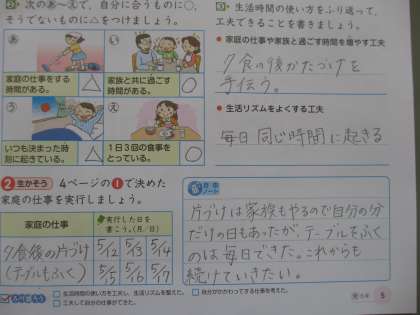 次のあ〜えで、自分に合うものに○、
そうでないものに△をつけましょう。
あ
い
家庭の仕事をする
時間がある。
△
家族と共に過ごす
時間がある。
○
う
え
いつも決まった時
刻に起きている。
△
1日3回の食事を
とっている。
○
生活時間の使い方をふり返って、
工夫できることを書きましょう。
● 家庭の仕事や家族と過ごす時間を増やす工夫
夕食の後かたづけを
手伝う。
● 生活リズムをよくする工夫
毎日同じ時間に起きる
2 生かそう 4ページの1で決めた
家庭の仕事を実行しましょう。
家庭の仕事
実行した日を
書こう。(月/日)
夕食後の片づけ
(テーブルもふく)
5/12 5/13 5/14
5/15 5/16 5/17
片づけは家族もやるので自分の分
だけの日もあったが、テーブルをふく
のは毎日できた。これからも
続けていきたい。
生活時間の使い方を工夫し、生活リズムを整えた。
自分がかかわってする仕事を考えた。
工夫して自分の仕事ができた。
5